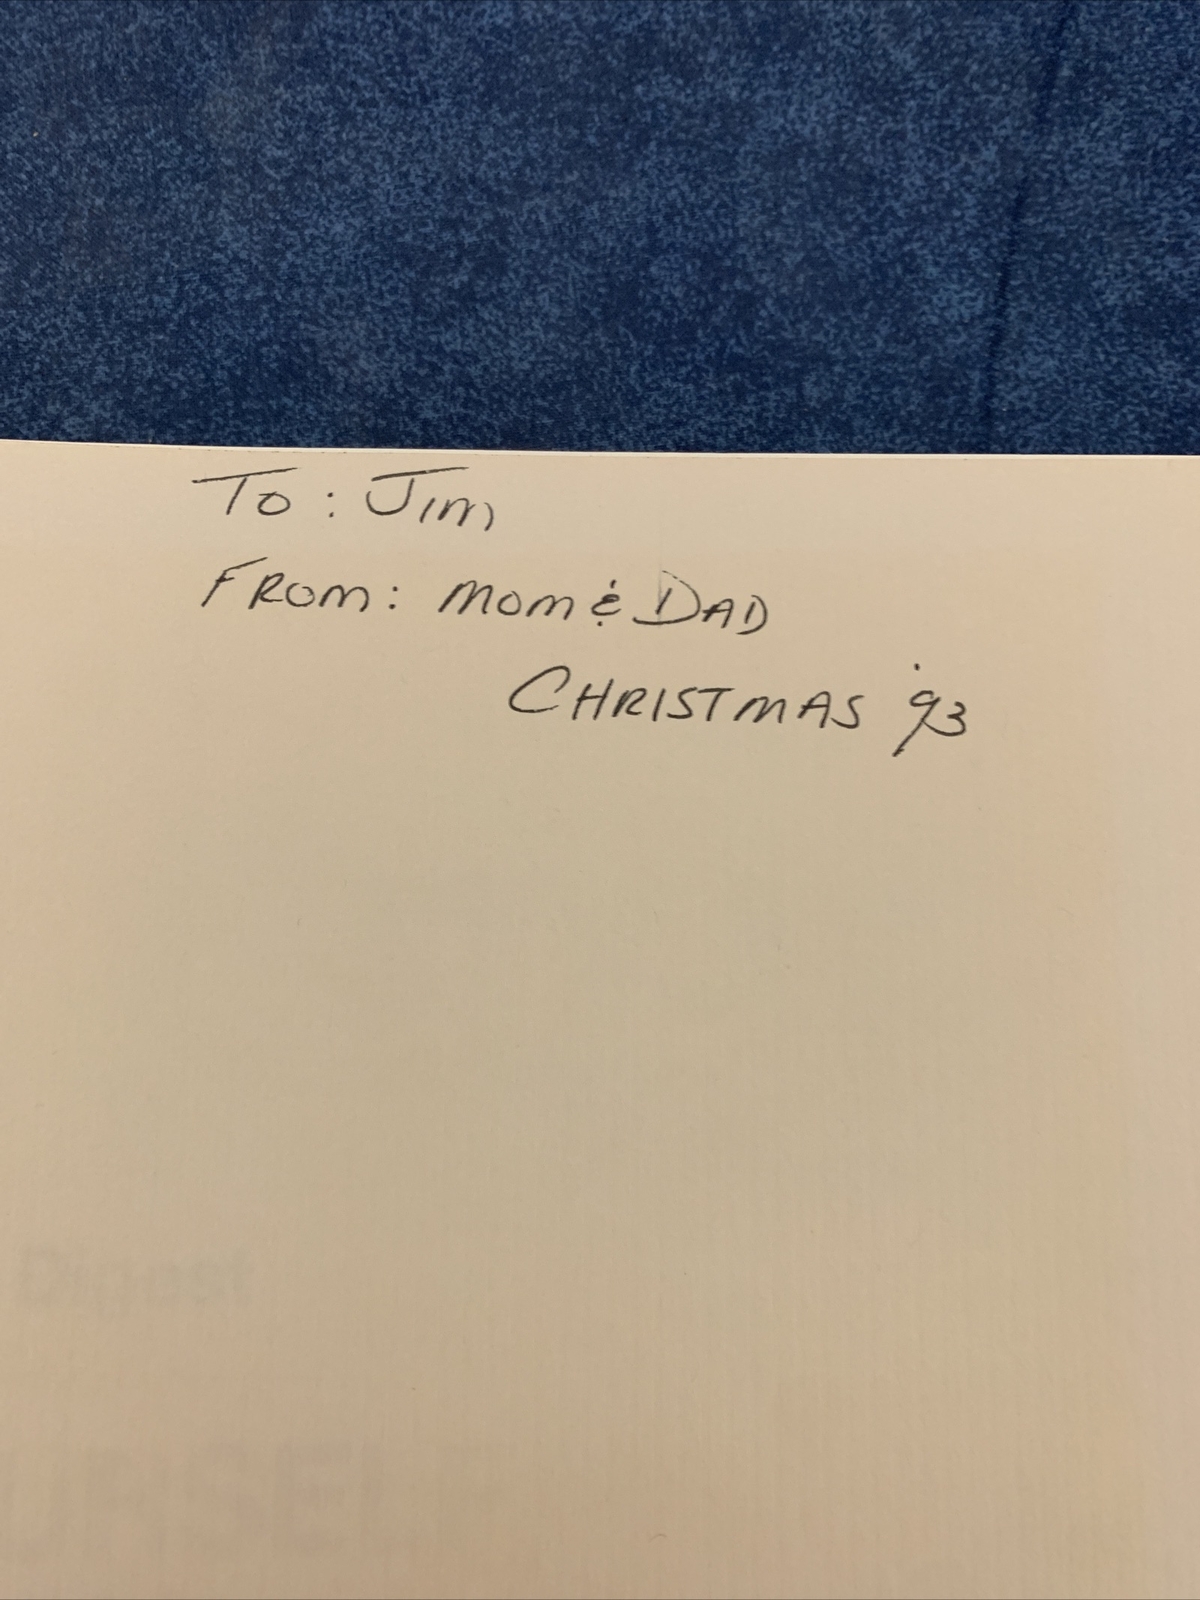 To: Jim
From: Mom & Dad
Christmas '93
Digest